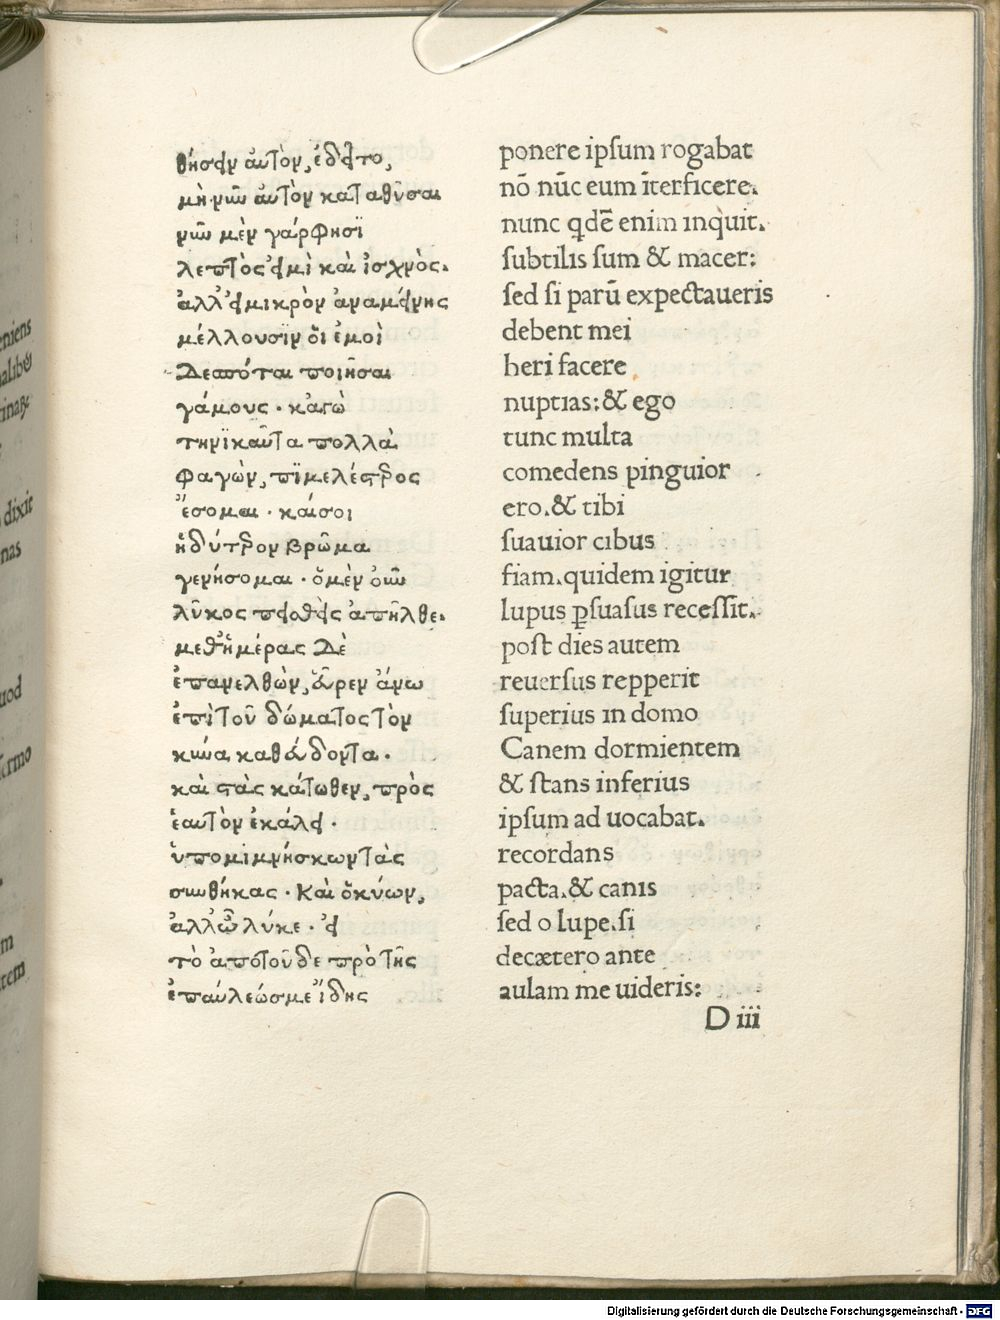 θήσειν ἀυτὸν, ἐδεῖτο,
μὴ νῦν ἀυτὸν καταθῦσαι
νῦν μὲν γάρ φησὶ
λεπτὸς εἰμὶ καὶ ἰσχνὸς.
ἀλλ' εἰ μικρὸν ἀναμείνης
μέλλουσιν ὅι ἐμοὶ
Δεσπόται ποιῆσαι
γάμους · κἀγὼ
τηνϊκαῦτα πολλὰ
φαγὼν, πϊμελέστερος
ἔσομαι · καί σοι
ἡδύτερον βρῶμα
γενήσομαι · ὁ μὲν οὖν
λῦκος πεισθεὶς ἀπῆλθε.
μεθ' ἡμέρας Δὲ
ἐπανελθὼν, εὗρεν ἄνω
ἐπὶ τοῦ δώματος τὸν
κύνα καθεύδοντα ·
καὶ στὰς κάτωθεν, πρὸς
ἑαυτὸν ἐκάλει ·
ὑπομιμνήσκων τὰς
συνθήκας · Καὶ ὁ κύων,
ἀλλ' ὦ λύκε · εἰ
τὸ ἀπὸ τοῦ δε πρὸ τῆς
ἐπαύλεώς με ἴδης
ponere ipſum rogabat
nō nūc eum īterficere.
nunc qdē enim inquit.
ſubtilis ſum & macer:
ſed ſi parū expectaueris
debent mei
heri facere
nuptias: & ego
tunc multa
comedens pinguior
ero. & tibi
ſuauior cibus
fiam. quidem igitur
lupus ꝑſuaſus receſſit.
poſt dies autem
reuerſus repperit
ſuperius in domo
Canem dormientem
& ſtans inferius
ipſum ad uocabat.
recordans
pacta. & canis
ſed o lupe. ſi
decætero ante
aulam me uideris:
D iii
eniens
dixit
nas
uod
ſermo
Digitalisierung gefördert durch die Deutsche Forschungsgemeinschaft - DFG